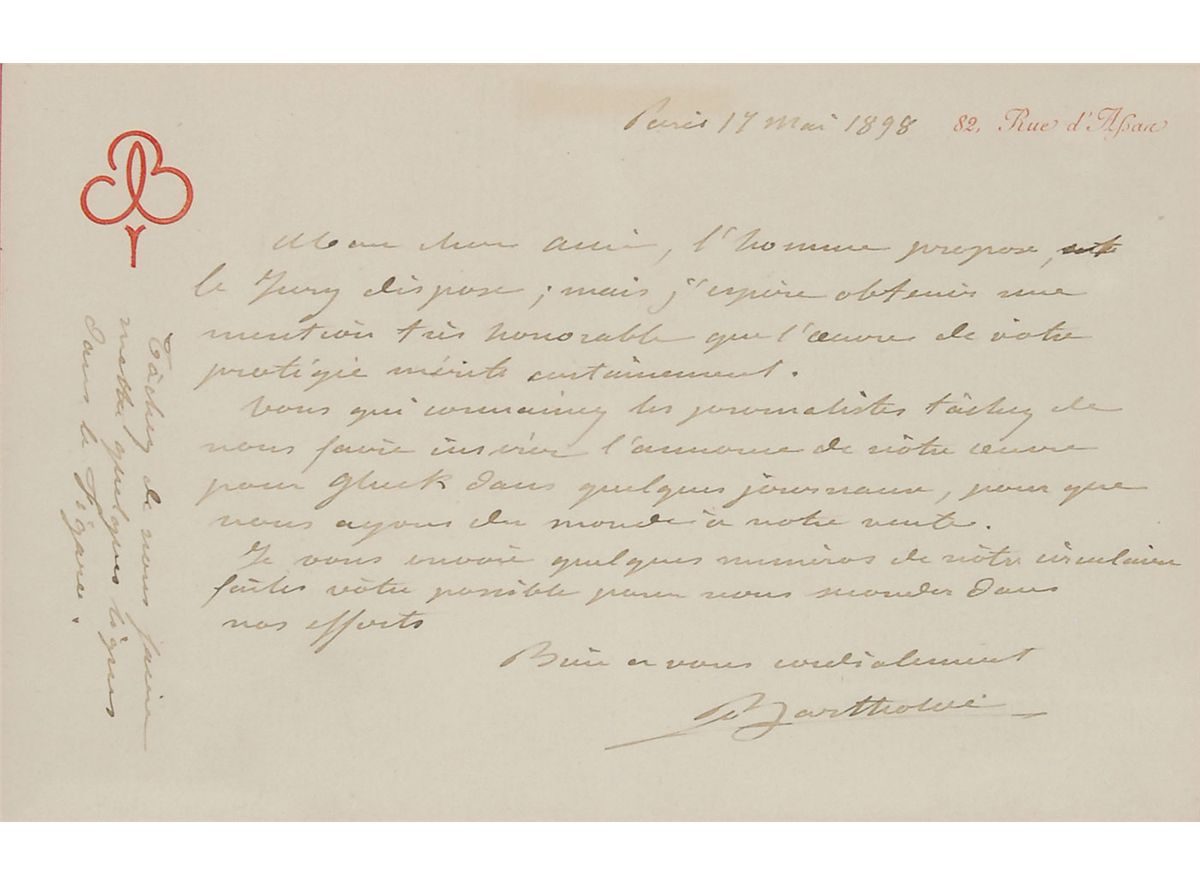 Paris 17 Mai 1898 82, Rue d'Assas
Mon cher ami, l'homme propose,
le Jury dispose ; mais j'espère obtenir une
mention très honorable que l'œuvre de votre
protégée mérite certainement.
Vous qui connaissez les journalistes tâchez de
nous faire insérer l'annonce de nôtre œuvre
pour Gluck dans quelques journaux, pour que
nous ayons du monde à notre vente.
Je vous envoie quelques numéros de nôtre circulaire
faites vôtre possible pour nous seconder dans
nos efforts
Bien a vous cordialement
Bartholdi
Tâchez de nous faire
mettre quelques lignes
dans le Figaro.